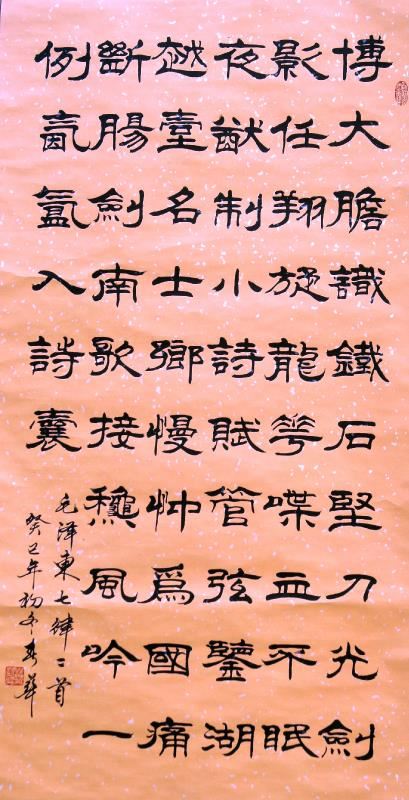 博大膽識鐵石堅刀光劍
影任翔旋龍華喋血不眠
夜猷制小詩賦管弦鑒湖
越臺名士鄉懮忡爲國痛
斷腸劍南歌接龝風吟一
例氤氳入詩囊
毛泽東七律二首
癸巳年初冬春華